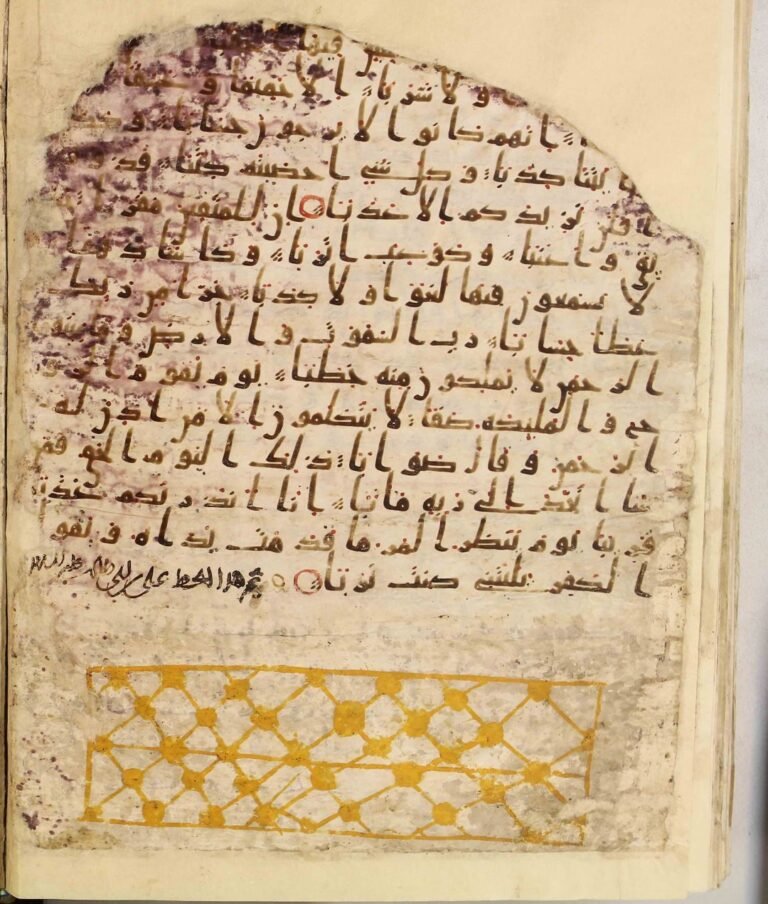 فيها
و لا شرابا الا حميما و غسقا
انهم كانوا لا يرجون حسابا و كذ
بايتنا كذبا و كل شي احصينه كتبا فذوقو
ا فلن نزيدكم الا عذابا ان للمتقين مفازا
ئق و اعنبا و كوعب اترابا و كاسا دهقا
لا يسمعون فيها لغوا و لا كذبا جزا من ربك
عطا حسابا رب السموت و الارض و ما بينهما
الرحمن لا يملكون منه خطبا يوم يقوم الرو
ح و الملئكه صفا لا يتكلمون الا من اذن له
الرحمن و قال صوابا ذلك اليوم الحق فمن
شا اتخذ الى ربه مابا انا انذرنكم عذبا
قريبا يوم ينظر المر ما قدمت يداه و يقو
ل الكفر يليتني كنت تربا تم هذا الخط على